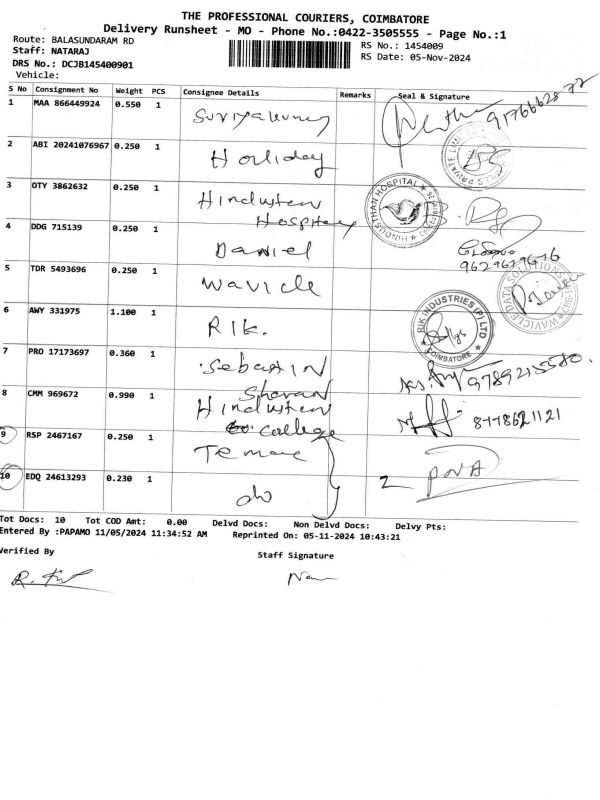 THE PROFESSIONAL COURIERS, COIMBATORE
Delivery Runsheet - MO - Phone No.:0422-3505555 - Page No.:1
Route: BALASUNDARAM RD
RS No.: 1454009
Staff: NATARAJ
RS Date: 05-Nov-2024
DRS No.: DCJB145400901
Vehicle:
S No Consignment No Weight PCS Consignee Details Remarks Seal & Signature
1 MAA 866449924 0.550 1
2 ABI 20241076967 0.250 1 Holiday
3 OTY 3862632 0.250 1 Hindusten Hospitay HINDUSTHAN HOSPITAL
4 DDG 715139 0.250 1 Daniel
5 TDR 5493696 0.250 1 Wavicle WAVICLE DATA SOLUTIONS
6 AWY 331975 1.100 1 RIK. RIK INDUSTRIES (P) LTD COIMBATORE
7 PRO 17173697 0.360 1 Sebastin Sharan
8 CMM 969672 0.990 1 Hindusten college
9 RSP 2467167 0.250 1
10 EDQ 24613293 0.230 1 do
Tot Docs: 10 Tot COD Amt: 0.00 Delvd Docs: Non Delvd Docs: Delvy Pts:
Entered By :PAPAMO 11/05/2024 11:34:52 AM Reprinted On: 05-11-2024 10:43:21
Verified By
Staff Signature